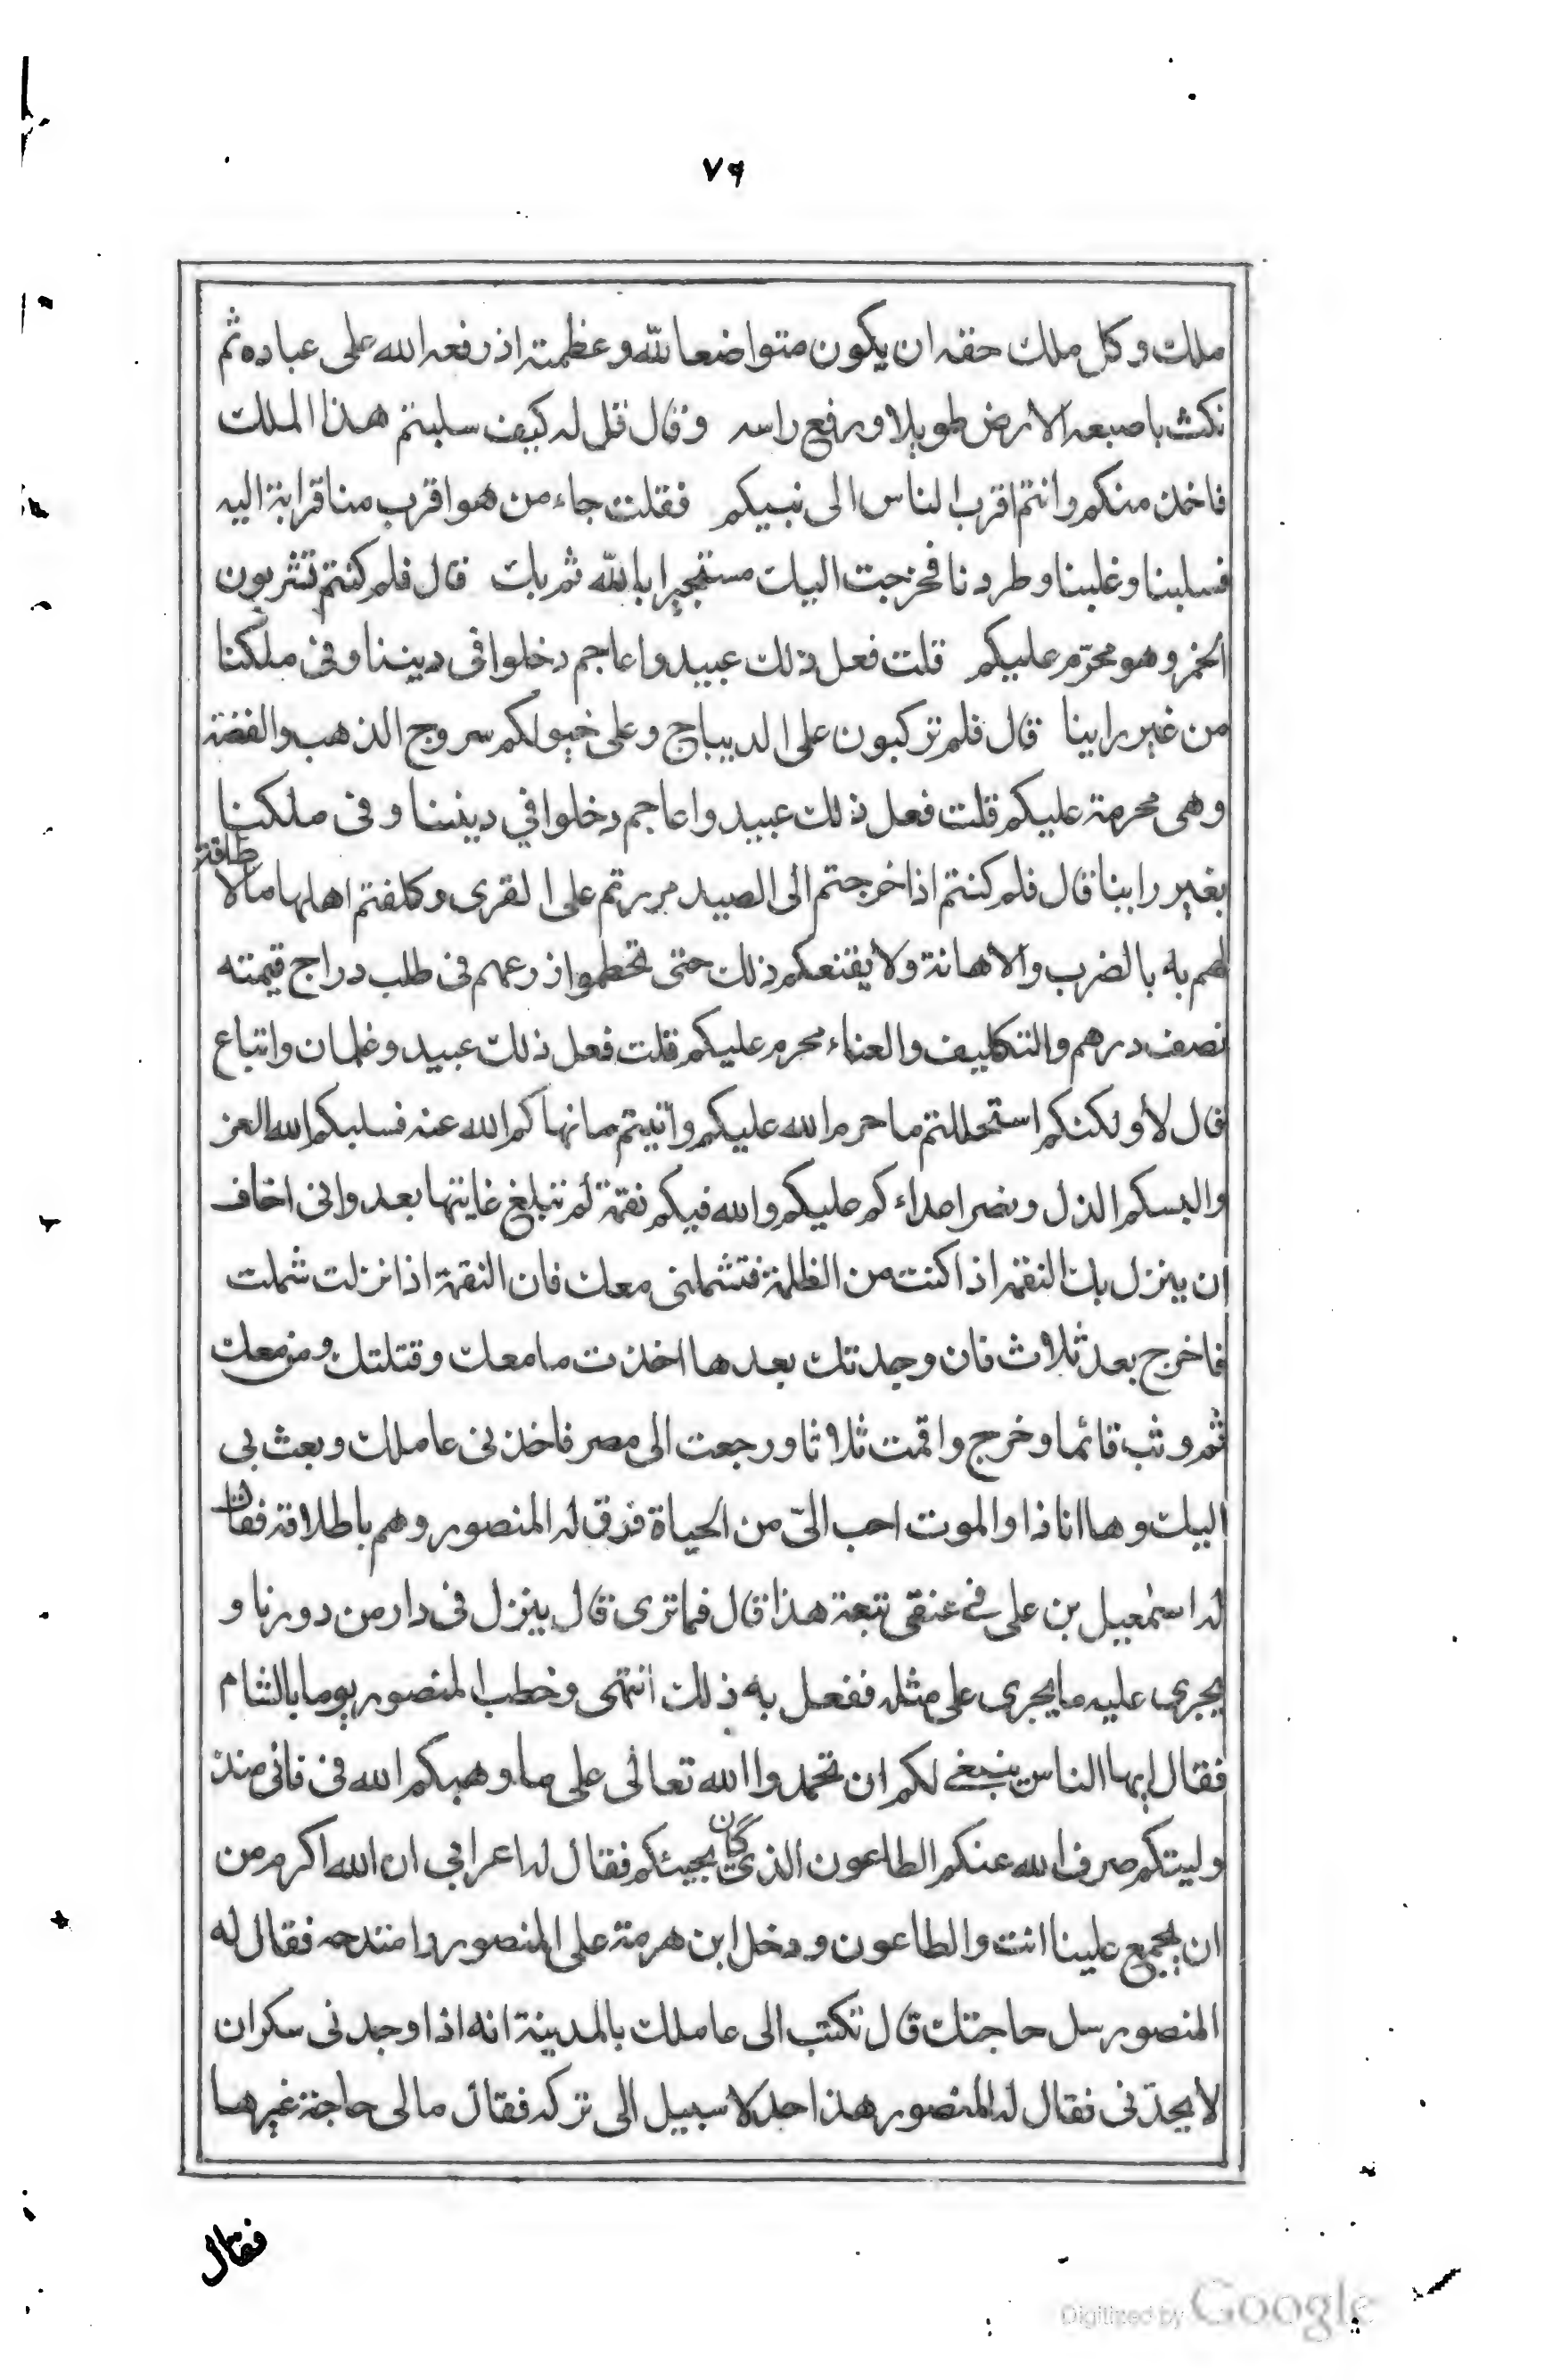 ٧٩
ملك وكل ملك حقه ان يكون متواضعا لله وعظمته اذ رفعه الله على عباده ثم
نكث باصبعه الارض طويلا ورفع راسه وقال قل له كيف سلبتم هذا الملك
فاخذ منكم وانتم اقرب الناس الى نبيكم فقلت جاء من هو اقرب منا قرابة اليه
فسلبنا وغلبنا وطردنا فخرجت اليك مستجيرا بالله ثم بك قال فلم كنتم تشربون
الخمر وهو محرّم عليكم قلت فعل ذلك عبيد واعاجم دخلوا فى ديننا وفى ملكنا
من غير راينا قال فلم تركبون على الديباج وعلى خيولكم سروج الذهب والفضة
وهى محرمة عليكم قلت فعل ذلك عبيد واعاجم دخلوا في ديننا وفى ملكنا
بغير راينا قال فلم كنتم اذا خرجتم الى الصيد مررتم على القرى وكلفتم اهلها مالا طاقة
لهم به بالضرب والاهانة ولا يقنعكم ذلك حتى تحطموا زرعهم فى طلب دراج قيمته
نصف درهم والتكليف والعناء محرم عليكم قلت فعل ذلك عبيد وغلمان واتباع
قال لا ولكنكم استحللتم ما حرم الله عليكم واتيتم ما نهاكم الله عنه فسلبكم الله العز
والبسكم الذل ونصر اعداءكم عليكم ولله فيكم نقمة لم تبلغ غايتها بعد وانى اخاف
ان ينزل بك النقمة اذا كنت من الظلمة فتشملنى معك فان النقمة اذا نزلت شملت
فاخرج بعد ثلاث فان وجدتك بعدها اخذت ما معك وقتلتك ومن معك
ثم وثب قائما وخرج واقمت ثلاثا ورجعت الى مصر فاخذنى عاملك وبعث بى
اليك وها انا ذا والموت احب الىّ من الحياة فرق له المنصور وهم باطلاقه فقال
له اسمعيل بن على في عنقى تبعة هذا قال فما ترى قال ينزل فى دار من دورنا و
يجرى عليه ما يجرى على مثله ففعل به ذلك انتهى وخطب المنصور يوما بالشام
فقال ايها الناس ينبغى لكم ان تحمدوا الله تعالى على ما وهبكم الله فى فانى منذ
وليتكم صرف الله عنكم الطاعون الذى كان يجيئكم فقال له اعرابى ان الله اكرم من
ان يجمع علينا انت والطاعون ودخل ابن هرمة على المنصور وامتدحه فقال له
المنصور سل حاجتك قال تكتب الى عاملك بالمدينة انه اذا وجدنى سكران
لا يحدّنى فقال له المنصور هذا حد لا سبيل الى تركه فقال مالى حاجة غيرها
فقال
Digitized by Google